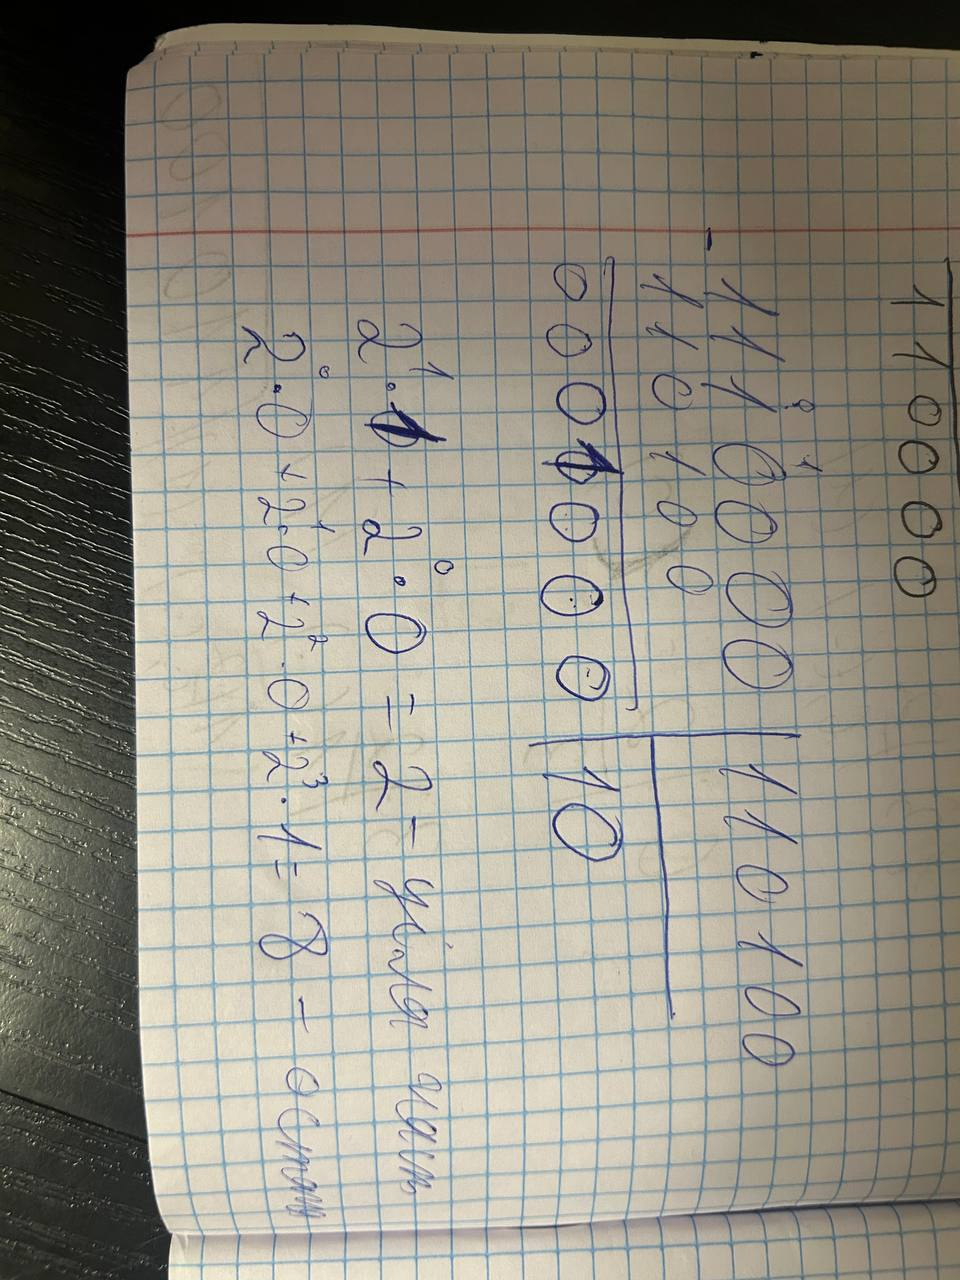 110000
0 1
1110000 110100
- 110100
0001000 10
2¹·1 + 2⁰·0 = 2 - ціла част
2⁰·0 + 2¹·0 + 2²·0 + 2³·1 = 8 - остат